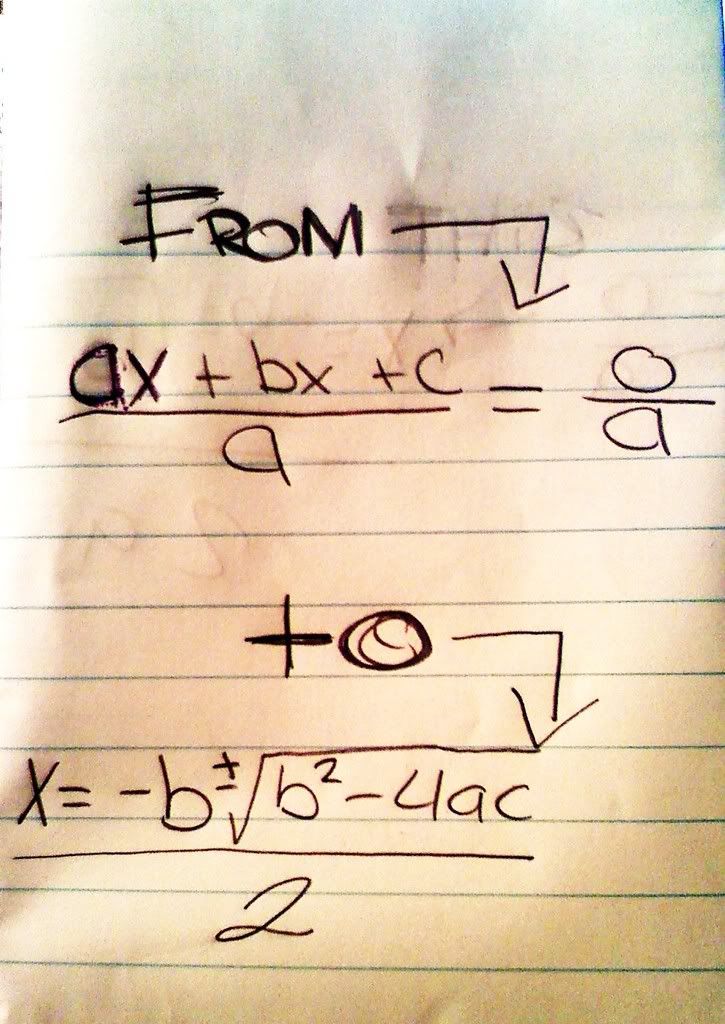 FROM
ax + bx + c = 0
a a
to
x = -b ± √b² - 4ac
2